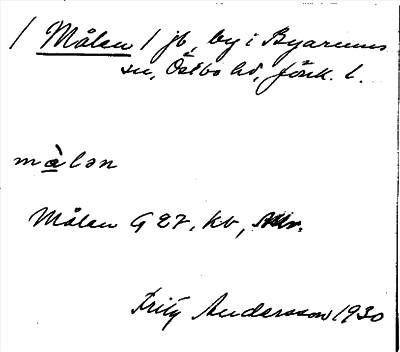 / Målen / jb, by i Byarums
sn, Östbo hd, Jönk. l.
màlən
Målen G E 27. kb,
Fritz Andersson 1930